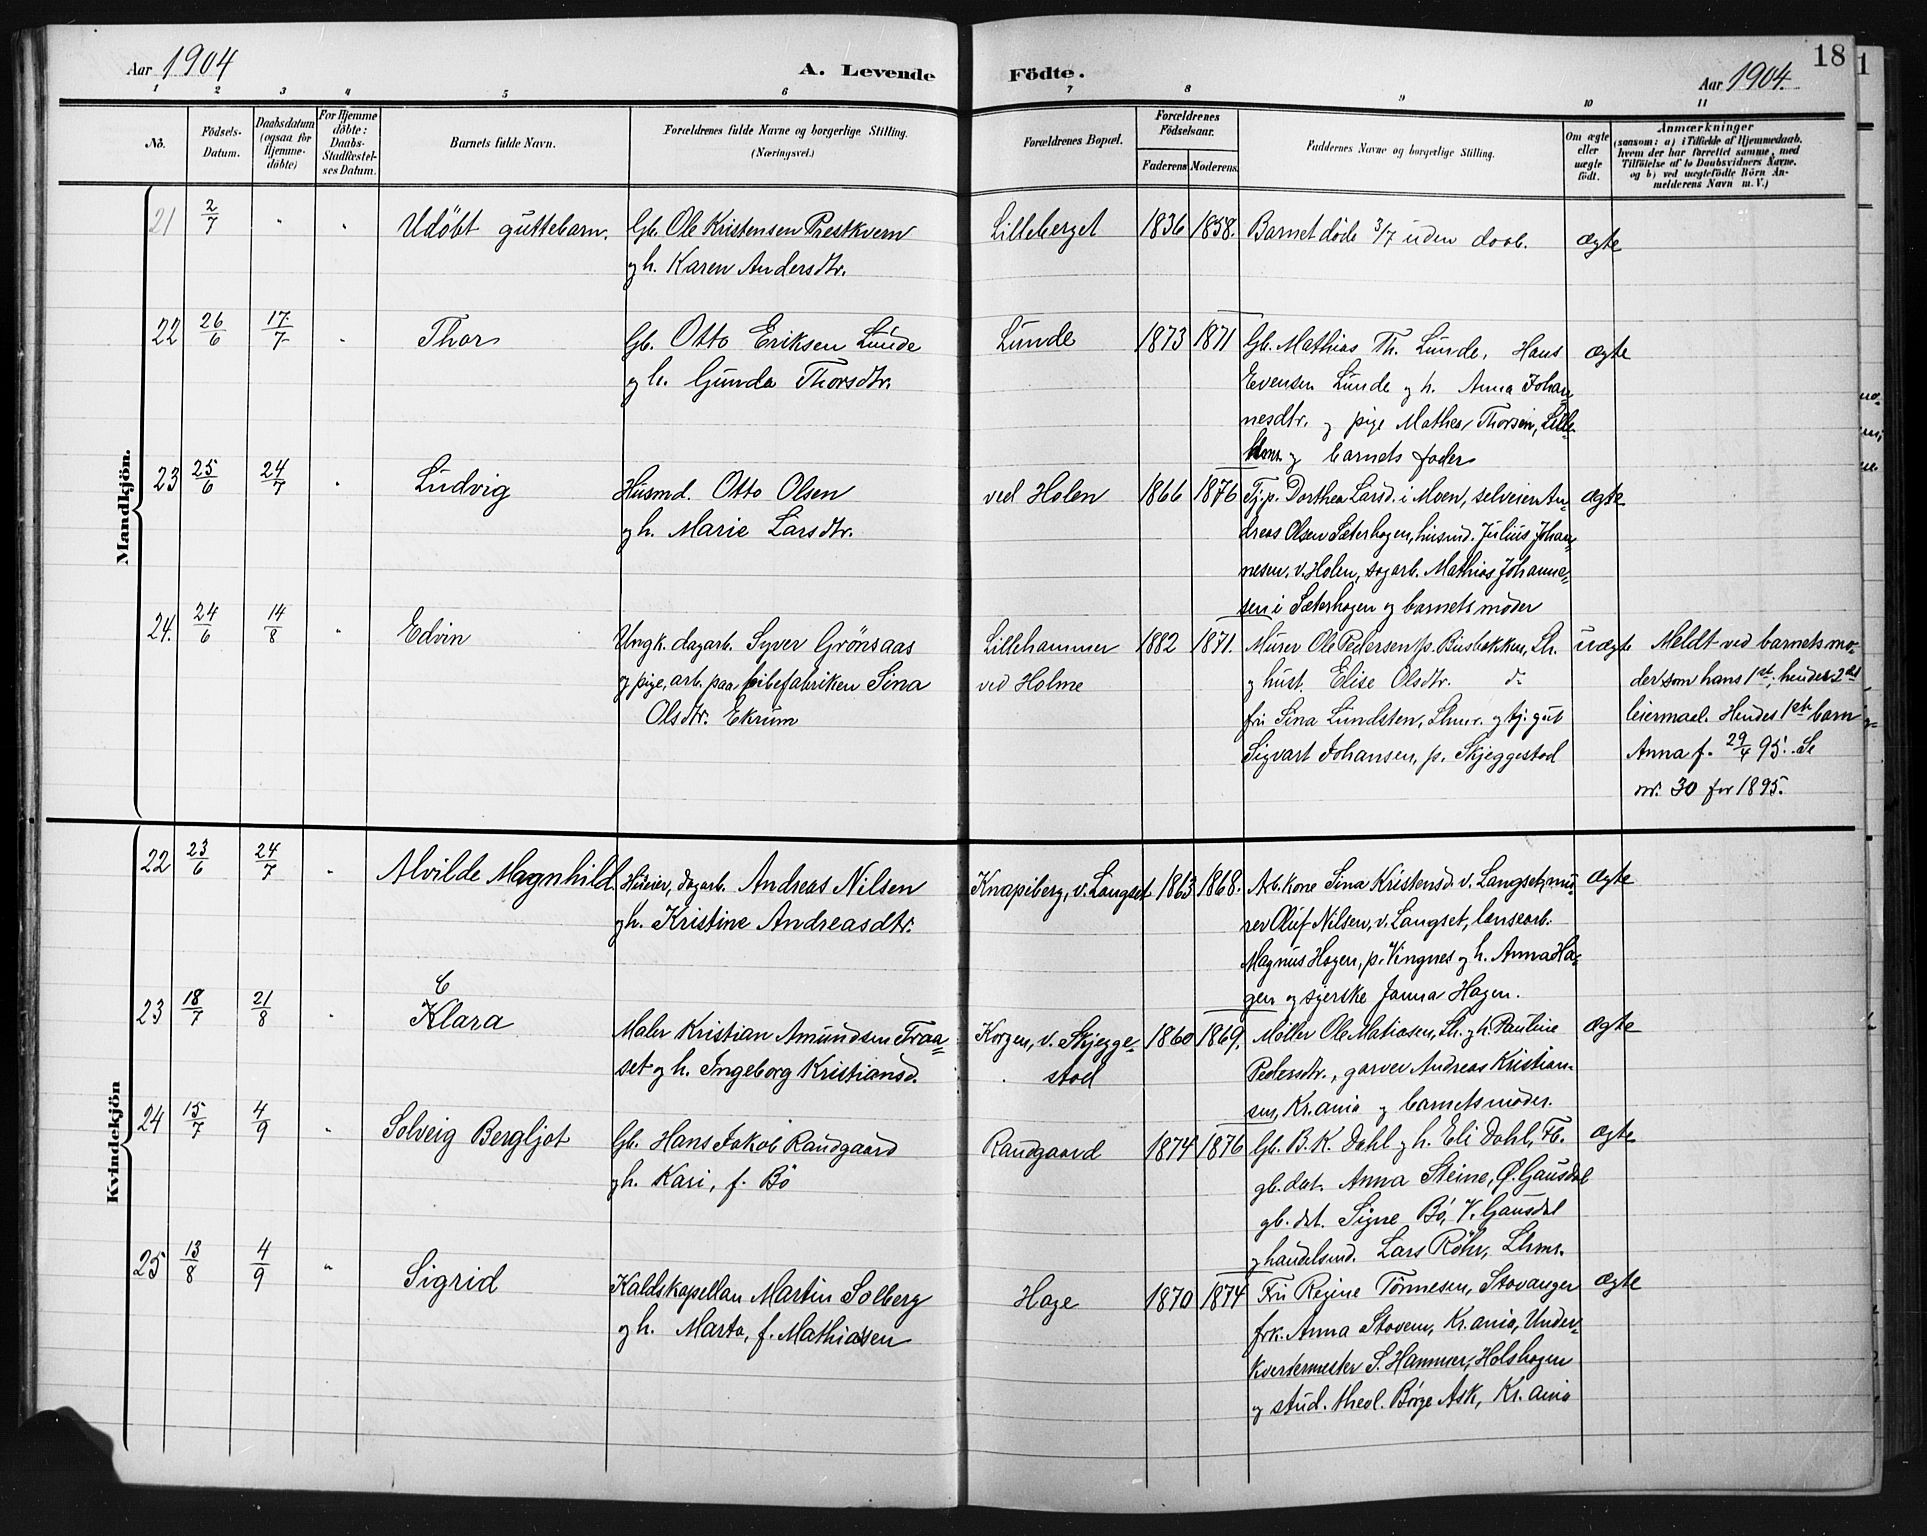 18
Aar 1904
A. Levende Födte.
Aar 1904.
1 2 3 4 5 6 7 8 9 10 11
No.
Födsels-Datum.
Daabsdatum (ogsaa for Hjemme-döbte)
For Hjemme döbte: Daabs-Stadfæstel-ses Datum.
Barnets fulde Navn.
Forældrenes fulde Navne og borgerlige Stilling.
(Næringsvei.)
Forældrenes Bopæl.
Forældrenes Födselsaar.
Faderens Moderens.
Faddernes Navne og borgerlige Stilling.
Om ægte eller uægte födt.
Anmærkninger
(saasom: a) i Tilfælde af Hjemmedaab,
hvem der har forrettet samme, med
Tilföielse af to Daabsvidners Navne,
og b) ved uægtefödte Börn An-
melderens Navn m. V.)
Mandkjön.
21 2/7 " " Udöbt guttebarn. Gb. Ole Kristensen Prestkvern
og h. Karen Andersdtr.
Lilleberget 1836 1858. Barnet döde 3/7 uden daab. ægte
22 26/6 17/7 " Thor Gb. Otto Eriksen Lunde
og h. Gunda Thorsdtr.
Lunde 1873 1871 Gb. Mathias Th. Lunde, Hans
Evensen Lunde og h. Anna Johan-
nesdtr. og pige Mathea Thorsen, Lille-
hmr. og barnets fader
ægte
23 25/6 24/7 " Ludvig Husmd. Otto Olsen
og h. Marie Larsdtr.
ved Holen 1866 1876 Tj.p. Dorthea Larsd. i Moen, selveier An-
dreas Olsen Sæterhagen, husmd. Julius Johan-
nesen, v. Holen, dagarb. Mathias Johanne-
sen i Sæterhagen og barnets moder
ægte
24. 24/6 14/8 " Edvin Ungk. dagarb. Syver Grönsaas
og pige, arb. paa pibefabriken Sina
Olsdtr. Ekrum
Lillehammer
ved Holme
1882 1871. Murer Ole Pedersen p. Busbakken, Lh.
og hust. Elise Olsdtr. do
fru Sina Lundsten, Lhmr. og tj. gut
Sigvart Johansen, p. Skjeggestad
uægte Meldt ved barnets mo-
der som hans 1ste, hendes 2det
leiermaal. Hendes 1ste barn
Anna f. 29/4 95. Se
nr. 30 for 1895.
Kvindekjön
22 23/6 24/7 " Alvilde Magnhild Huseier, dagarb. Andreas Nilsen
og h. Kristine Andreasdtr.
Knapiberg, v. Langset 1863 1868. Arb.kone Sina Kristensd. v. Langset, mu-
rer Oluf Nilsen, v. Langset, lænsearb.
Magnus Hagen, p. Vingnes og h. Anna Ha-
gen og syerske Janna Hagen.
ægte
23 18/7 21/8 " C
Klara Maler Kristian Amundsen Traa-
set og h. Ingeborg Kristiansd.
Korgen, v. Skjegge-
stad
1860 1869. Möller Ole Matiasen, Lh. og h. Pauline
Pedersdtr., garver Andreas Kristian-
sen, Kr.ania og barnets moder.
ægte
24 15/7 4/9 " Solveig Bergljot Gb. Hans Jakob Randgaard
og h. Kari, f. Bö
Randgaard 1874 1876 Gb. B. K. Dahl og h. Eli Dahl, Fb.
gb.dat. Anna Steine, Ö. Gausdal
gb. dat. Signe Bö, V. Gausdal
og handelsmd. Lars Röhr, Lhmr.
ægte
25 13/8 4/9 " Sigrid Kaldskapellan Martin Solberg
og h. Marta, f. Mathiassen
Hage 1870 1874 Fru Regine Tönnesen, Stavanger
frk. Anna Stavem, Kr.ania, Under-
kvartermester S. Hammer, Holshagen
og stud. theol. Börge Ask, Kr.ania
ægte